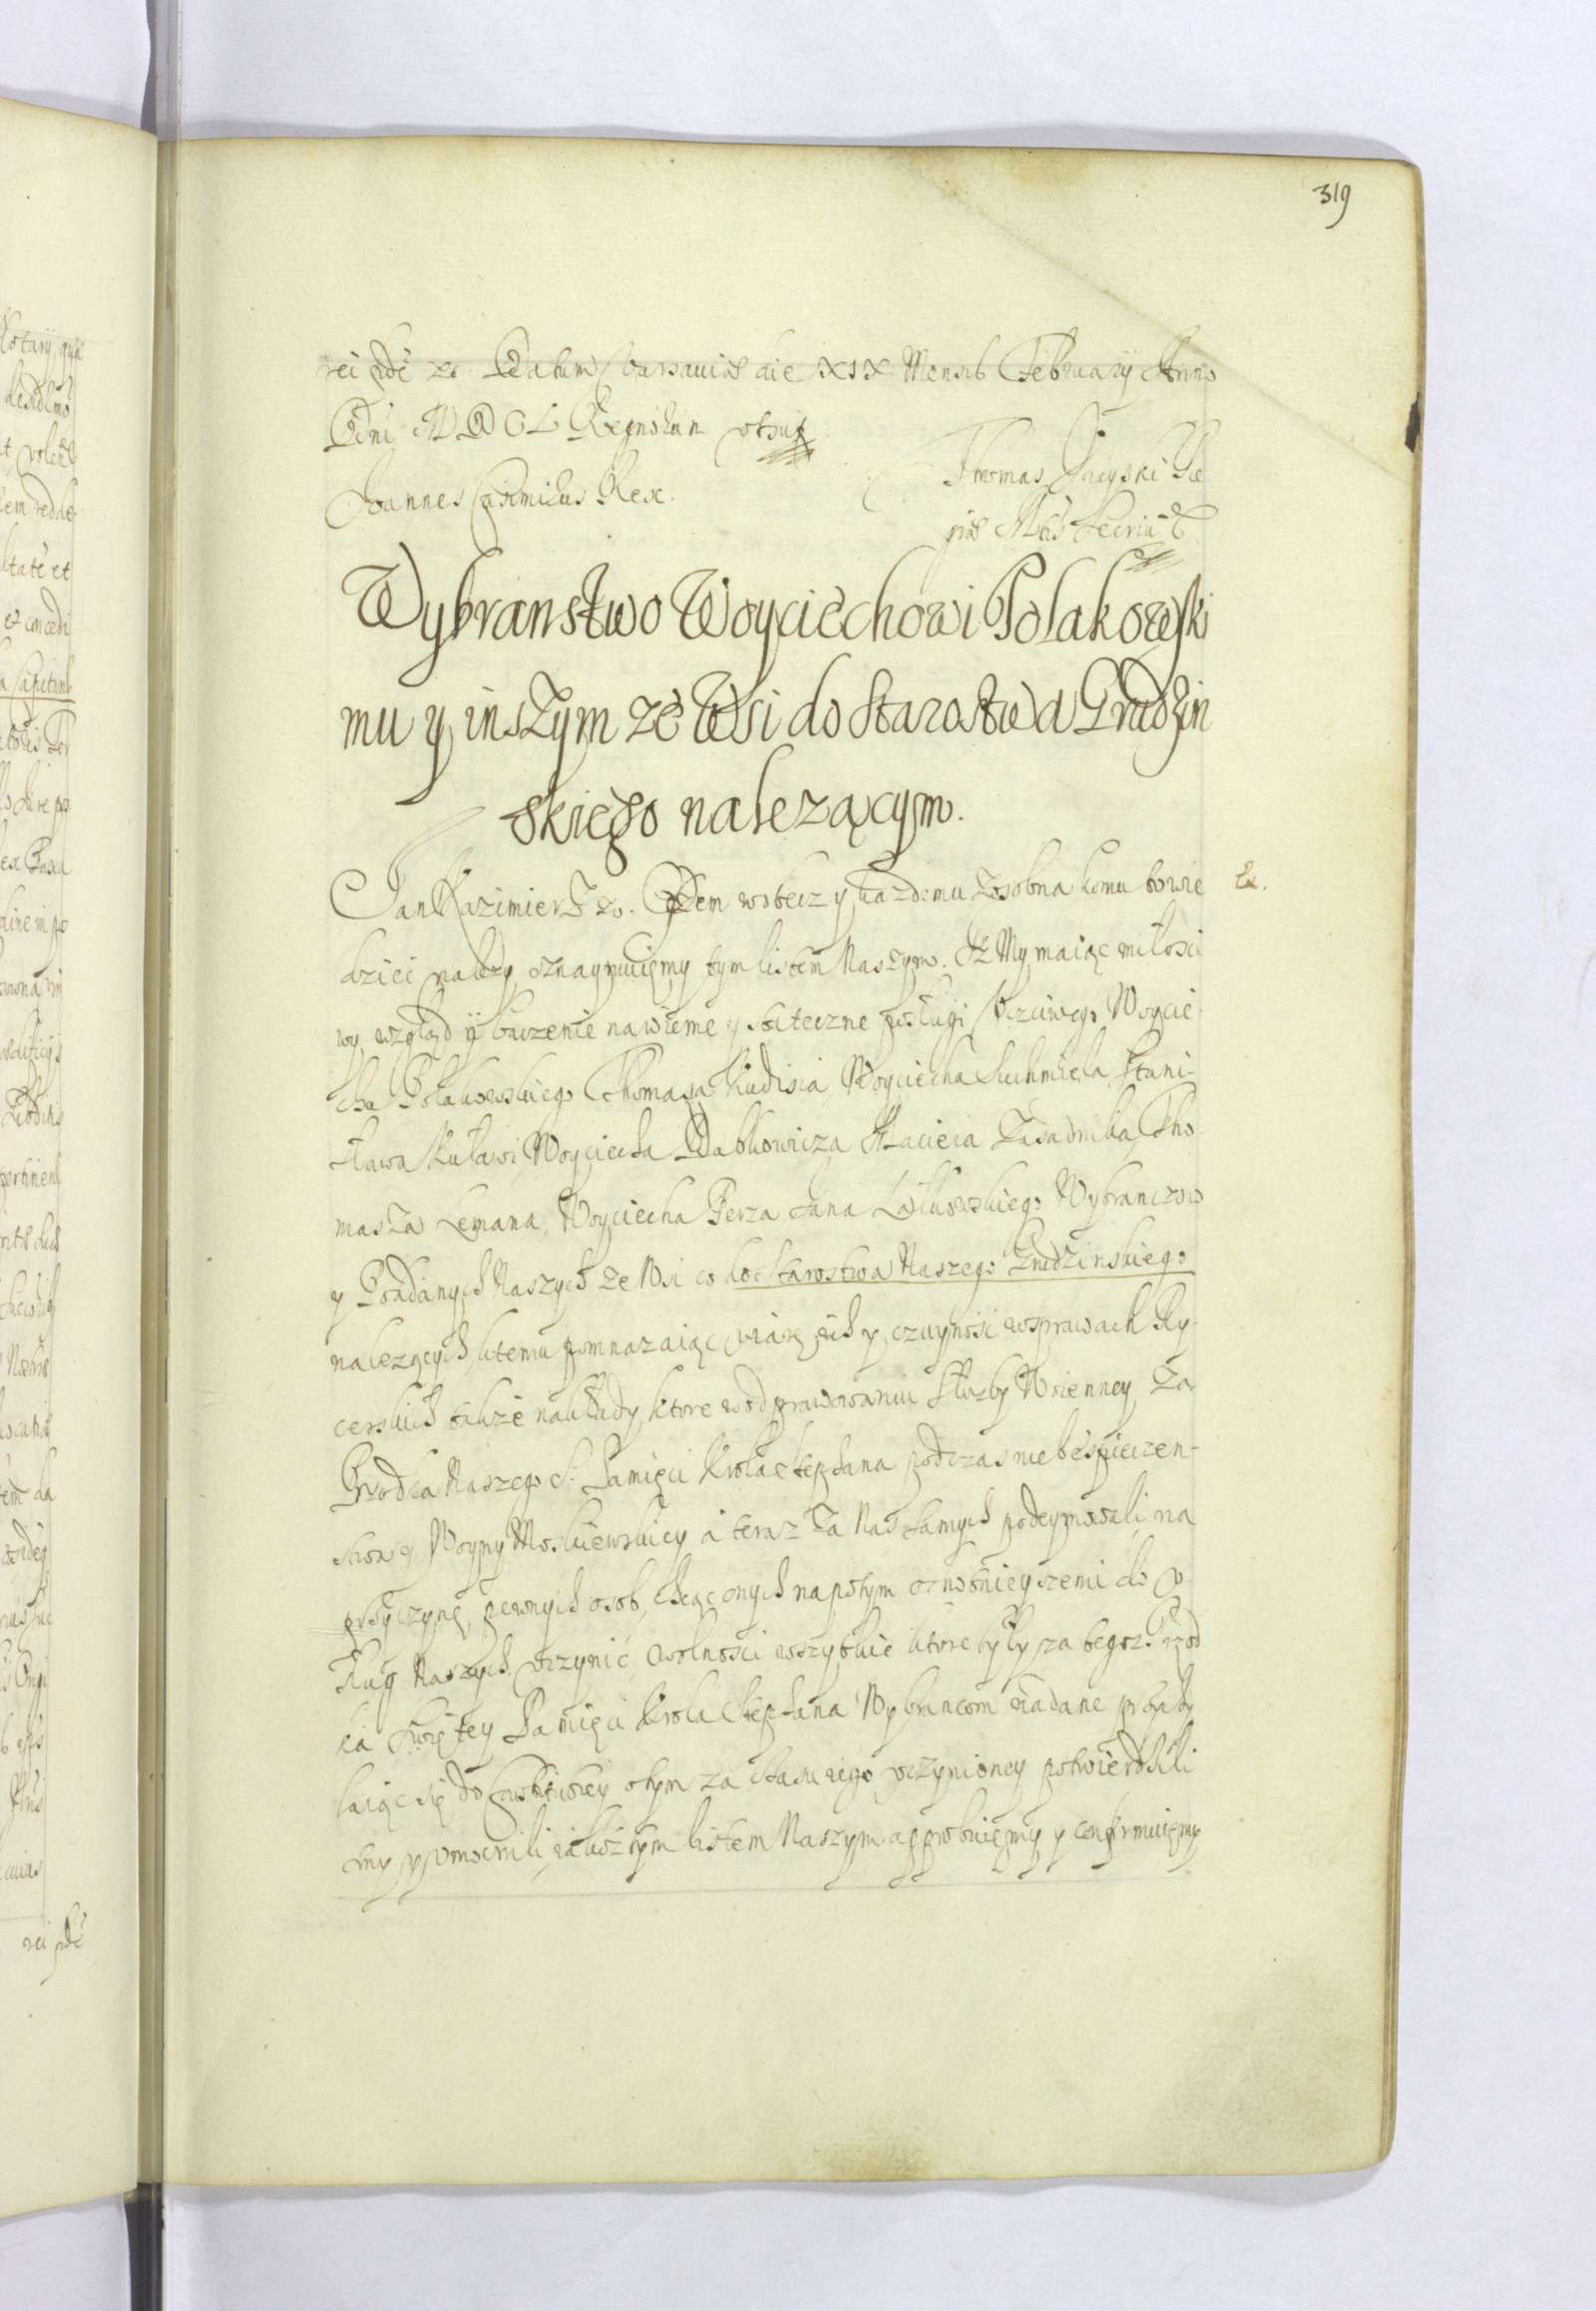 319
rei fidē etc. Datum Varsaviae die XIX Mensis Februarij Anno
Dñi MDCL Regnorum ut supra
Joannes Casimirus Rex. Thomas
Mtis Secriūs
Wybranstwo Woyciechowi Polakowski
mu y inszym ze Wsi do Starostwa Grudzin
skiego nalezącym.
Jan Kazimierz etc. wobecz y kazdemu zosobna komu to wie
dzieć nalezy oznaymuięmy tym listem Naszym. Iz My maiąc miłosci
wy wzgląd y baczenie na wierne y stateczne posługi Uczciwego Woycie
cha Polakowskiego Thomasza Woyciecha Stani-
sława Woyciecha Dabkowicza Macieia Tho
masza Lemana, Woyciecha Jana Wybranczow
y Poddanych Naszych ze Wsi do Starostwa Naszego Grudzinskiego
nalezących, ktemu pomnazaiąc wiarę ich y czuyność wsprawach Ry-
cerskich także nakłady, ktore wodprawowaniu słuzby Woienney za
Przodka Naszego S. Pamięci Krola Stephana podczas niebespieczen-
stwa Woyny Moskiewskiey a teraz za Nas samych podeymowali, na
przyczynę pewnych osob, chcąc onych napotym ochotnieyszemi do u
sług Naszych uczynić, wolnosci wszytkie ktore były za tegoz Przod
ka Swiętey Pamięci Krola Stephana Wybrancom nadane
laiąc się do Constitucey otym za Stasu iego uczynioney potwierdzili
smy y umocnili, iakosz tym listem Naszym approbuięmy y confirmuięmy